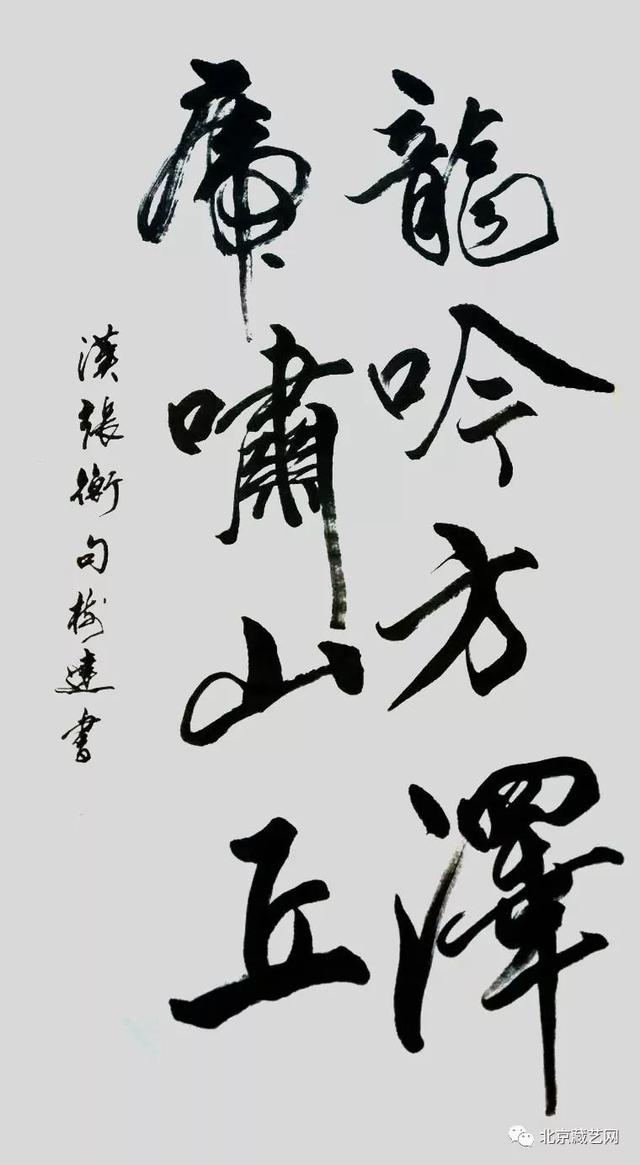 龍吟方澤
虎嘯山丘
漢張衡句樹達書
北京藏艺网